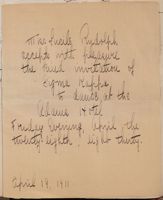 Miss Lucile Rudolph
accepts with pleasure
the kind invitation of
Sigma Kappa
to dance at the
Adams Hotel
Friday evening, April the
twenty-eighth, eight thirty.
April 19, 1911